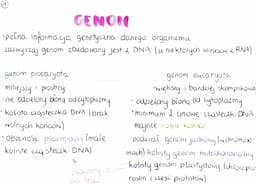 1
GENOM
• pełna informacja genetyczna danego organizmu
zazwyczaj genom zbudowany jest z DNA (u niektórych wirusów z RNA)
genom prokariota
mniejszy i prostszy
• nie oddzielony błoną od cytoplazmy
• kolista cząsteczka DNA (brak
wolnych końców)
• obecność plazmidów (małe
koliste cząsteczki DNA)
genom eukariota
• większy i bardziej skomplikowany
• oddzielony błoną od cytoplazmy
• minimum 2 liniowe cząsteczki DNA
mające wolne końce
• podział: genom jądrowy (w chromoso-
mach) kolisty genom mitochondrialny
kolisty genom plastydowy (chloroplasty
roślin i część protistów)